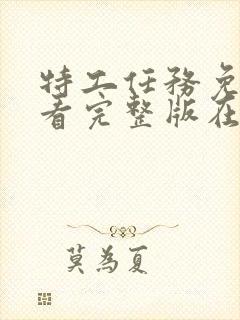 特工任务免
看完整版在
莫為夏